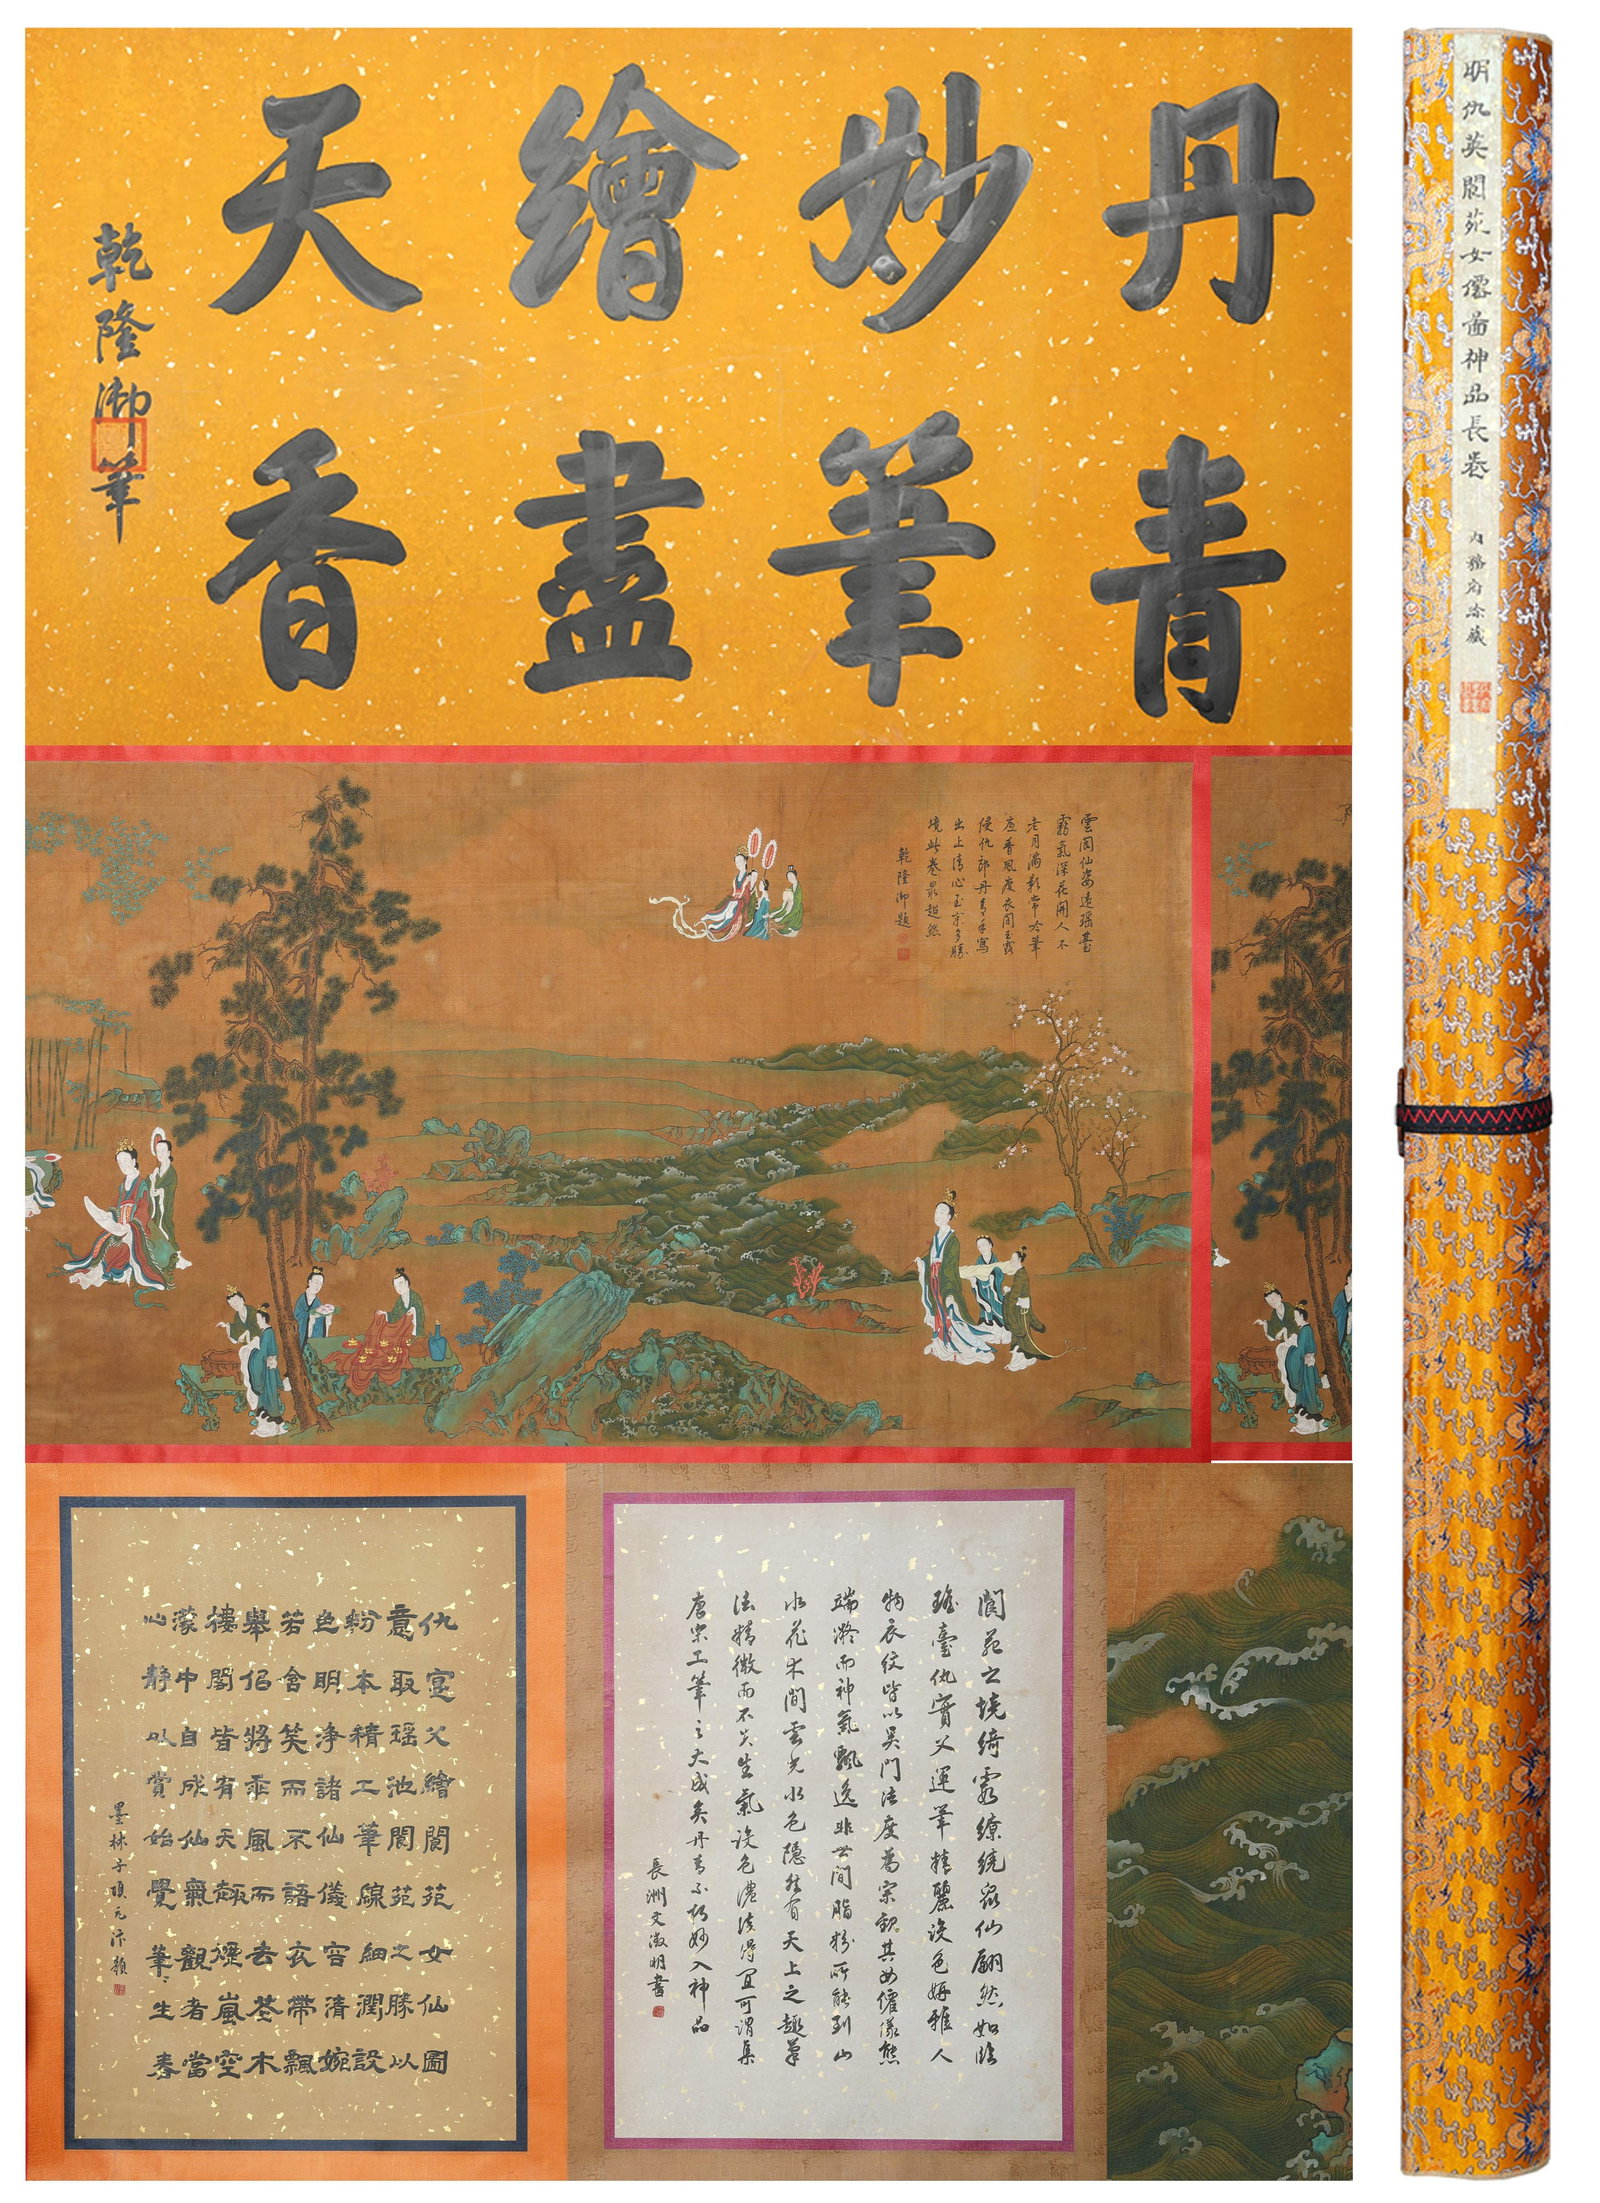 丹青
妙筆
繪盡
天香
乾隆御筆
明仇英閬苑女僊啚神品長卷
內務府珍藏
雲閬仙姿遠瑶臺
霧氣深花開人不
老月滿影常吟筆
底香風度衣間玉露
侵仇郎丹青手寫
出上清心玉京多勝
境此卷最超然
乾隆御題
閬苑之境綺霞繚繞眾仙翩然如臨
瑤臺仇實父運筆精麗設色妍雅人
物衣紋皆以吳門法度為宗觀其女僊儀態
端凝而神氣飄逸非世間脂粉所能到山
水花木間雲光水色隱然有天上之趣筆
法精微而不失生氣設色濃淡得宜可謂集
唐宋工筆之大成矣丹青不朽妙入神品
長洲文徵明書
仇寔父繪閬苑女仙圖
意取瑶池閬苑之勝以
粉本精工筆線細潤設
色明淨諸仙儀容清婉
若含笑而不語衣帶飄
舉佀將乘風而去花木
樓閣皆有天趣煙嵐空
濛中自成仙氣觀者當
心靜以賞始覺筆筆生春
墨林子項元汴題